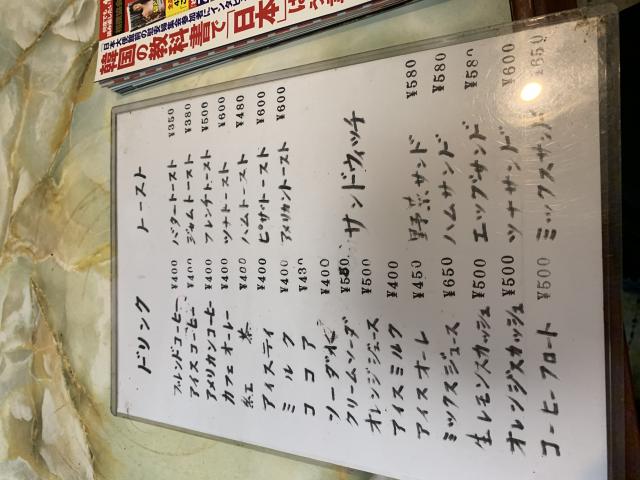 韓国の教科書で「日本」は
ドリンク
ブレンドコーヒー ¥400
アイスコーヒー ¥400
アメリカンコーヒー ¥400
カフェオーレ ¥400
紅茶 ¥400
アイスティ ¥400
ミルク ¥400
ココア ¥430
ソーダ水 ¥400
クリームソーダ ¥580
オレンジジュース ¥500
アイスミルク ¥400
アイスオーレ ¥450
ミックスジュース ¥650
生レモンスカッシュ ¥500
オレンジスカッシュ ¥500
コーヒーフロート ¥500
トースト
バタートースト ¥350
ジャムトースト ¥380
フレンチトースト ¥500
ツナトースト ¥600
ハムトースト ¥480
ピザトースト ¥600
アメリカントースト ¥600
サンドウィッチ
野菜サンド ¥580
ハムサンド ¥580
エッグサンド ¥580
ツナサンド ¥600
ミックスサンド ¥650